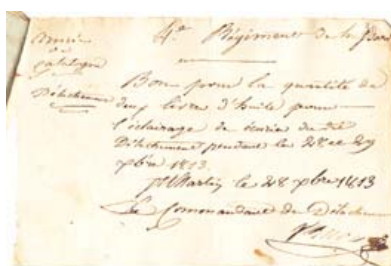 Armée
de
Catalogne
Détachement
4e Régiment de la
Bon pour la quantité de
deux livres d'huile pour
l'éclairage de écurie du dit
Détachement pendant les 28 et 29
xbre 1813.
le 28 xbre 1813
Le Commandant du Détachement